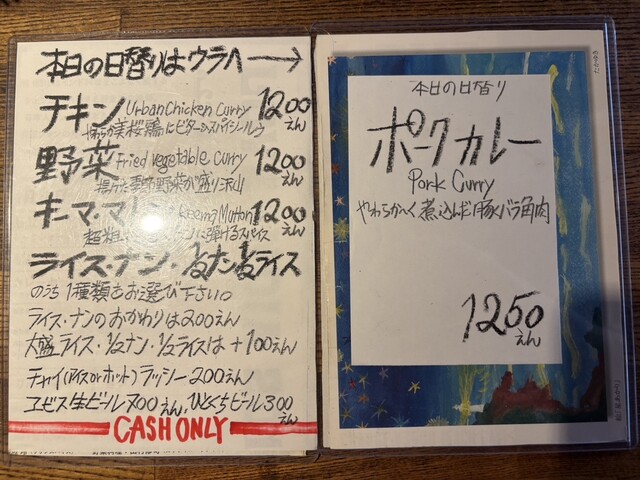 本日の日替りはウラへ→
チキン Urban Chicken Curry 1200えん
やわらか美桜鶏にビターなスパイシールウ
野菜 Fried vegetable curry 1200えん
揚げた季節野菜が盛り沢山
キーマ・マトン Keema Mutton 1200えん
超粗 に弾けるスパイス
ライス・ナン・1/2ナン1/2ライス
のうち1種類をお選び下さい。
ライス・ナンのおかわりは200えん
大盛ライス・1/2ナン・1/2ライスは+100えん
チャイ(アイスorホット)ラッシー200えん
ヱビス生ビール700えん、ひとくちビール300えん
CASH ONLY
本日の日替り
ポークカレー
Pork Curry
やわらか〜く煮込んだ豚バラ角肉
1250えん